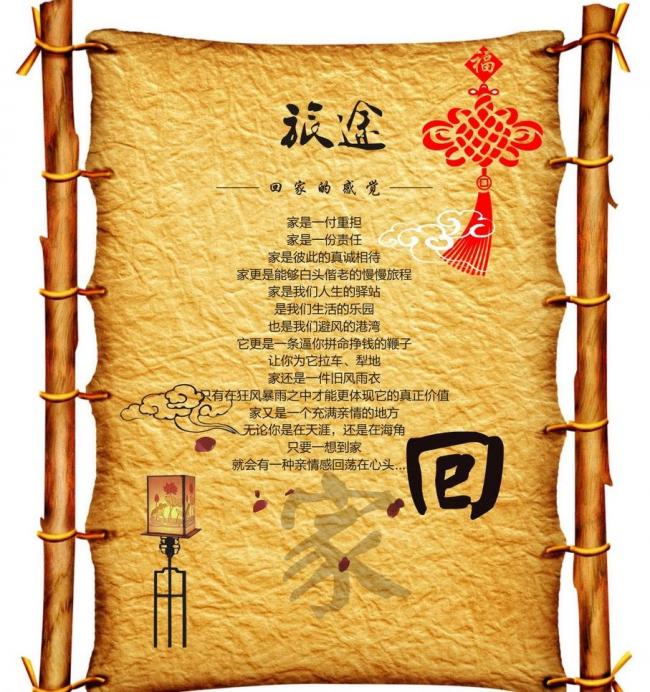 福
旅途
回家的感觉
家是一付重担
家是一份责任
家是彼此的真诚相待
家更是能够白头偕老的慢慢旅程
家是我们人生的驿站
是我们生活的乐园
也是我们避风的港湾
它更是一条逼你拼命挣钱的鞭子
让你为它拉车、犁地
家还是一件旧风雨衣
只有在狂风暴雨之中才能更体现它的真正价值
家又是一个充满亲情的地方
无论你是在天涯，还是在海角
只要一想到家
就会有一种亲情感回荡在心头...
回
家